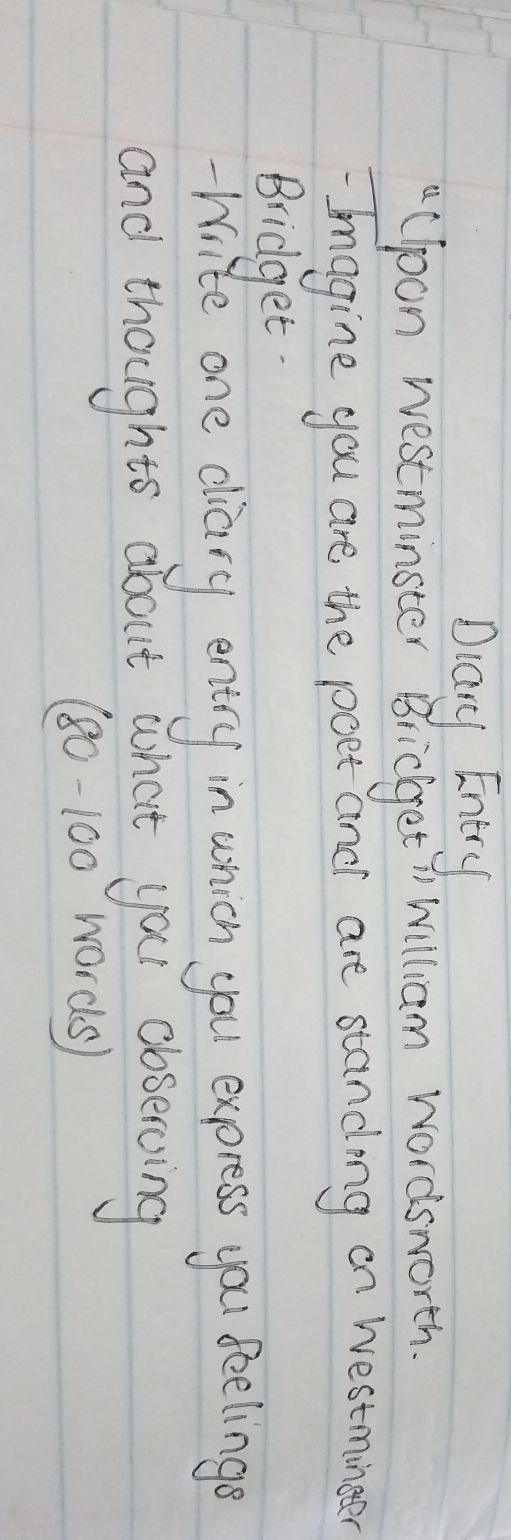 Diary Entry
"Upon Westminster Bridget" William Wordsworth.
-Imagine you are the poet and are standing on Westminster
Bridget.
-Write one diary entry in which you express you feelings
and thoughts about what you observing
(80-100 words)